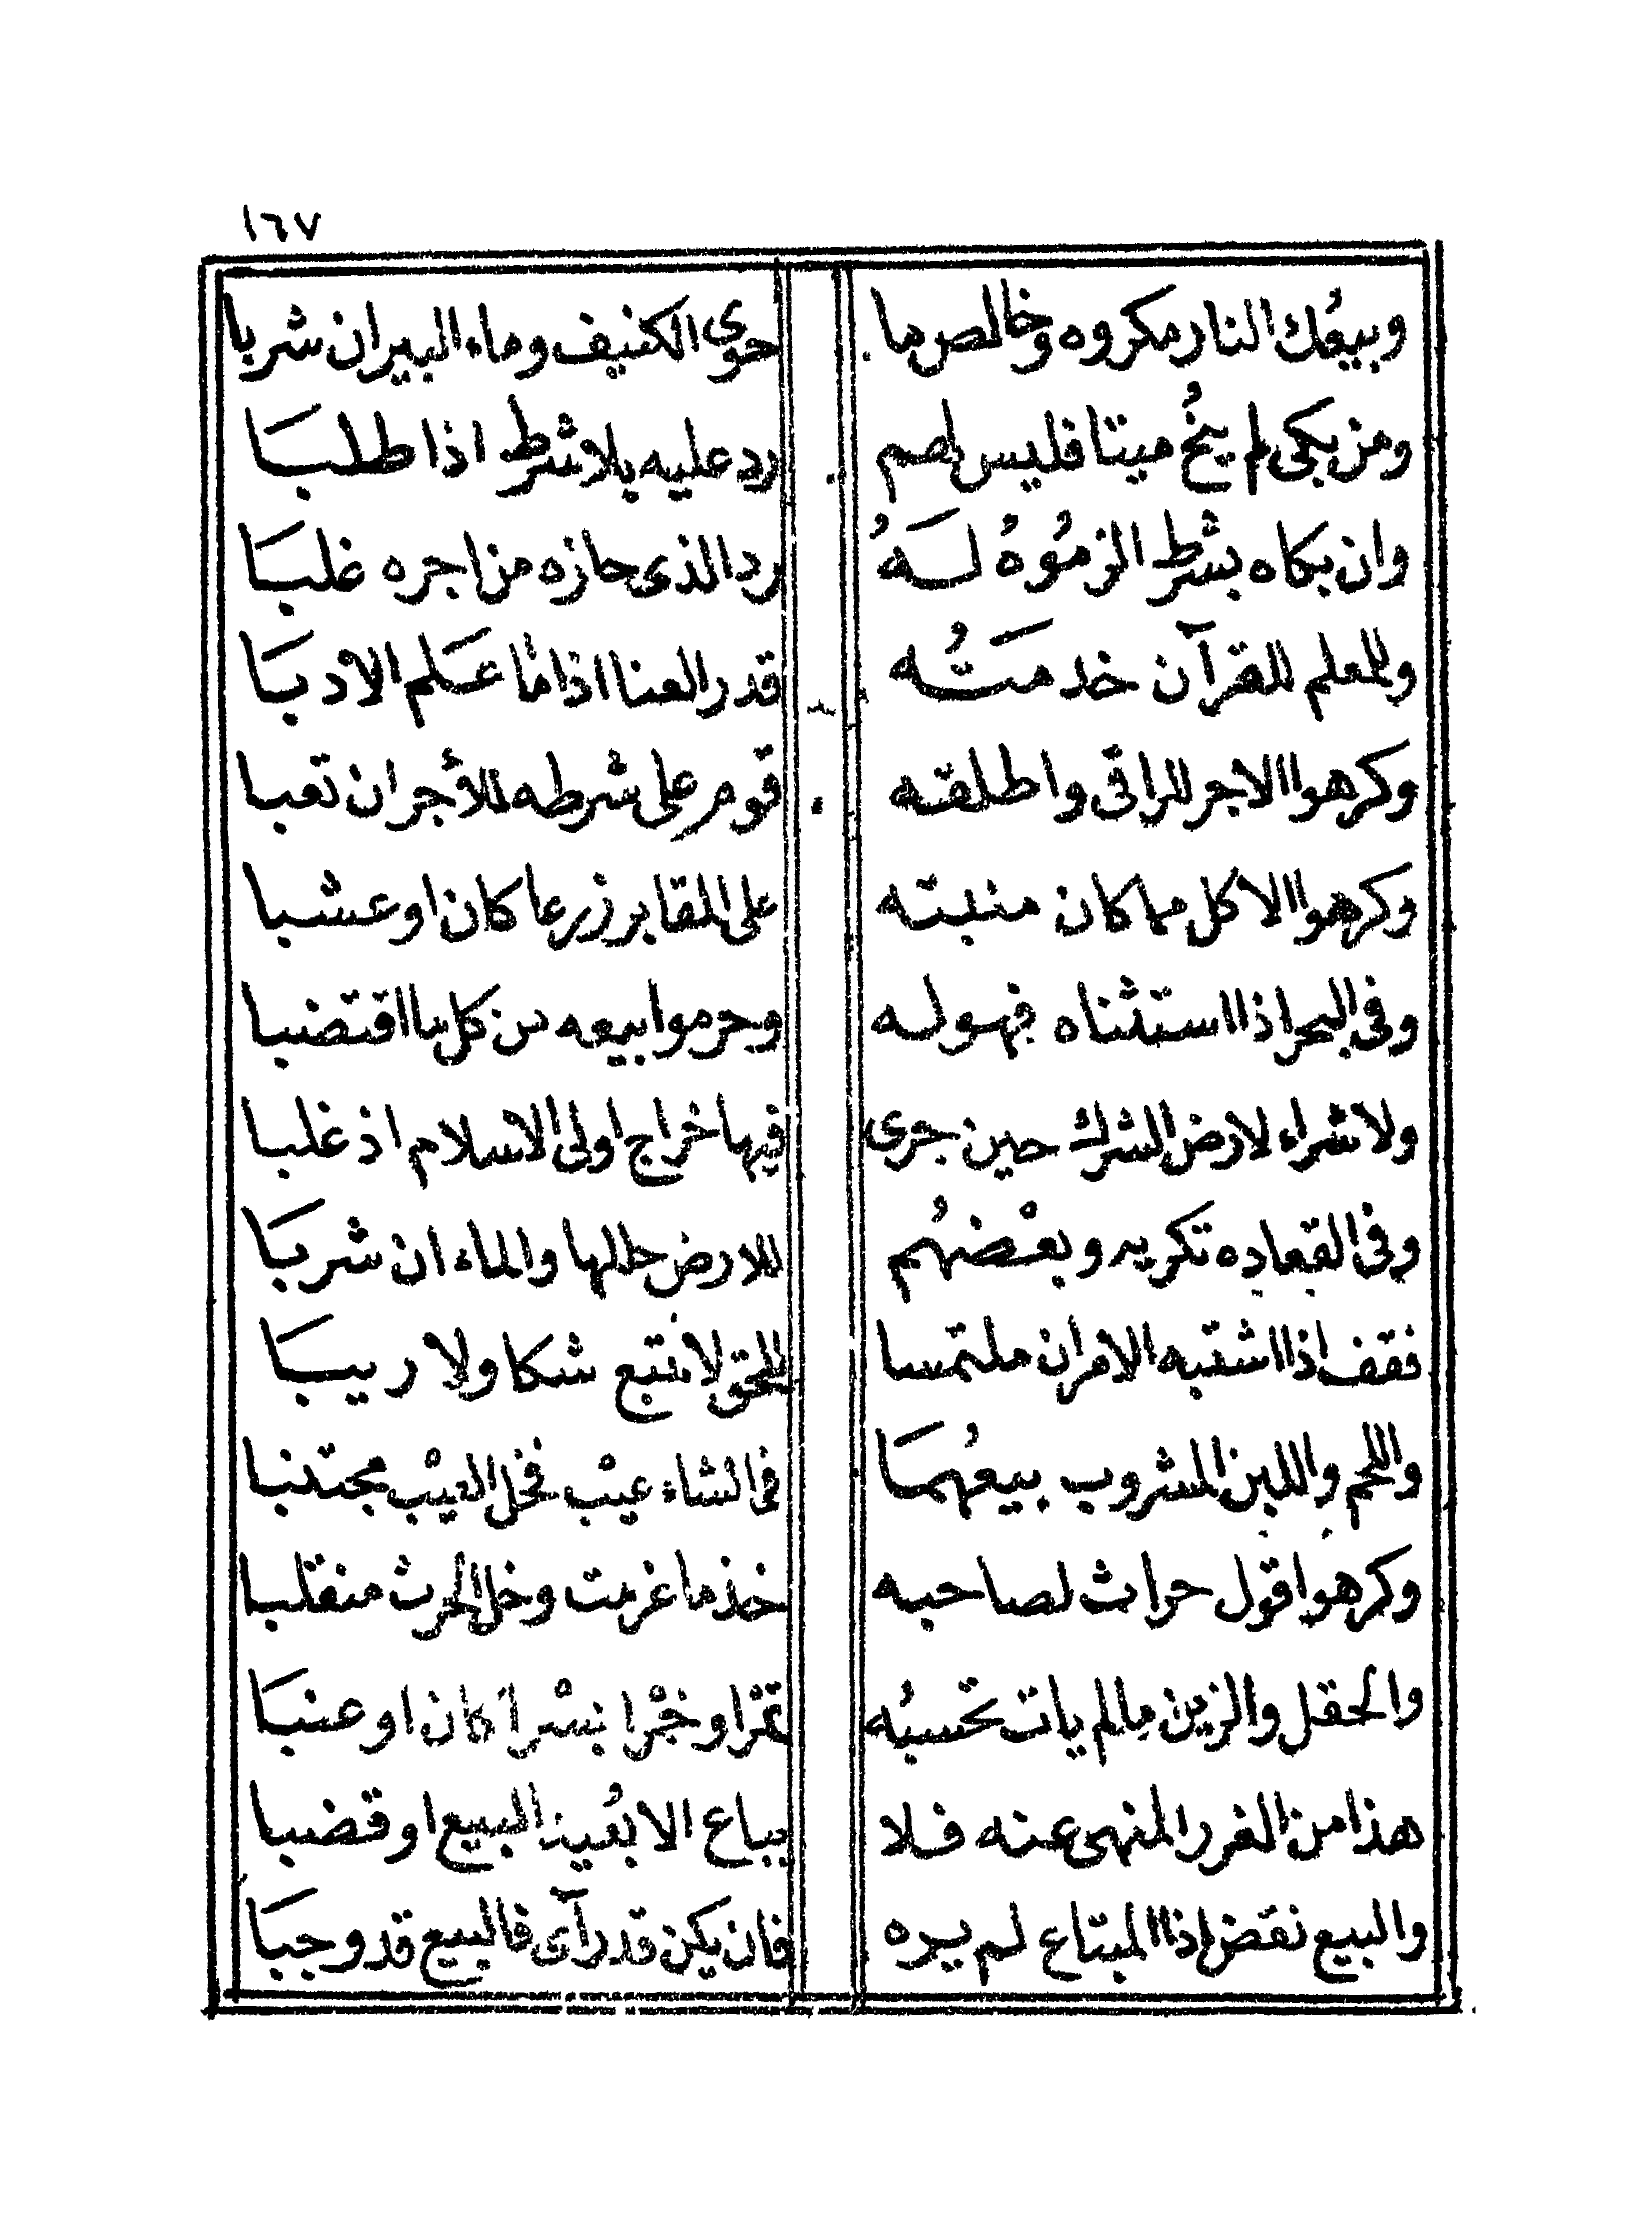 ١٦٧
وبيعُك النار مكروه وخالص ما حوى الكنيف وماء البيران شربا
ومن بكى لم يَنُحْ ميتا فليس لهم رد عليه بلا شرط اذا طلبَا
وان بكاه بشرط الزموُهُ لَهُ رد الذى حازه من اجره غلبَا
وللمعلم للقرآن خدمَتُه قدر العنا اذا ما عَلم الادبَا
وكرهوا الاجر للراقى واطلقه قوم على شرطه للأجر ان تعبا
وكرهوا الاكل مما كان منبته على المقابر زرعا كان او عشبا
وفى البحر اذا استثناه فهو له وحرموا بيعه من كل ما اقتضبا
ولا شراء لارض الشرك حين جرى فيها خراج اولى الاسلام اذ غلبا
وفى القعاده تكريه وبعْضهُم للارض حللها والماء ان شربَا
فقف اذا اشتبه الامران ملتمسا للحق لا تتبع شكا ولا ريبَا
واللحم واللبن المشروب بيعُهمَا فى الشاء عيْب فخل العيْب مجتنبا
وكرهوا قول حراث لصاحبه خذ ما غرمت وخل الحرث منقلبا
والحقل والزبن ما لم يات تحسبُه تمْرا وخمْرا بسْرا كان او عنبَا
هذا من الغرر المنهى عنه فلا يباع الا بُعيد البيع او قضبا
والبيع نقض اذا المبتاع لم يره فان يكن قد رآى فالبيع قد وجبَا